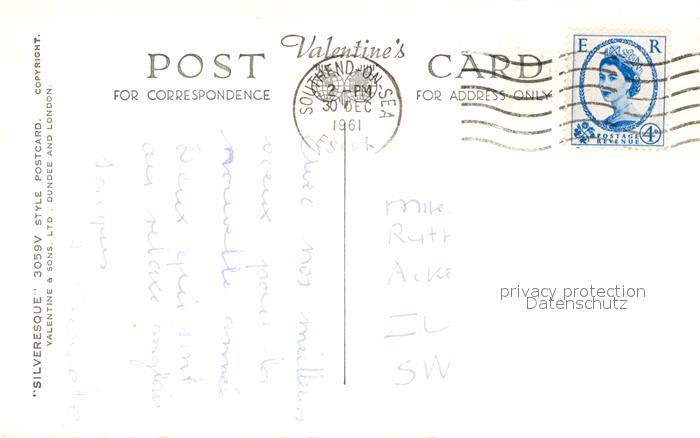 POST Valentine's CARD
FOR CORRESPONDENCE FOR ADDRESS ONLY
SOUTHEND-ON-SEA
2 - PM
30 DEC
1961
E R
POSTAGE
REVENUE
4D
Avec nos meilleurs
vœux pour la
nouvelle année
Deux qui sont
au relaxe anglais
Jacques
Mlle.
Ruth
Acke
IL
SW
privacy protection
Datenschutz
"SILVERESQUE" 3059V STYLE POSTCARD. COPYRIGHT.
VALENTINE & SONS, LTD. DUNDEE AND LONDON.